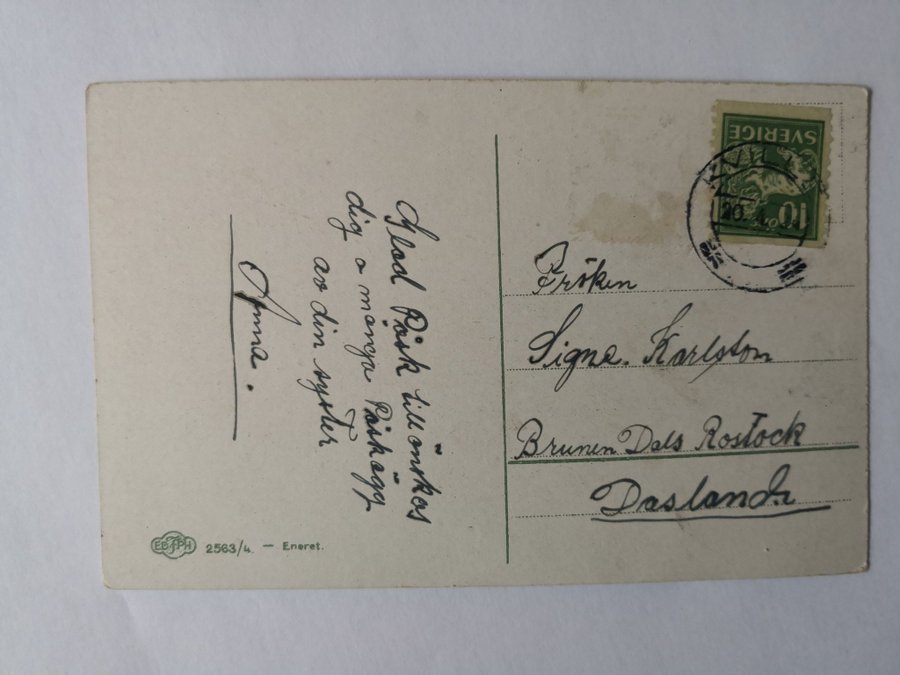 Glad Påsk tillönskas
dig o många Påskägg
av din syster
Anna.
SVERIGE
10
20.4
Fröken
Signe. Karlston
Brunen Dals Rostock
Dasland
2563/4. — Eneret.